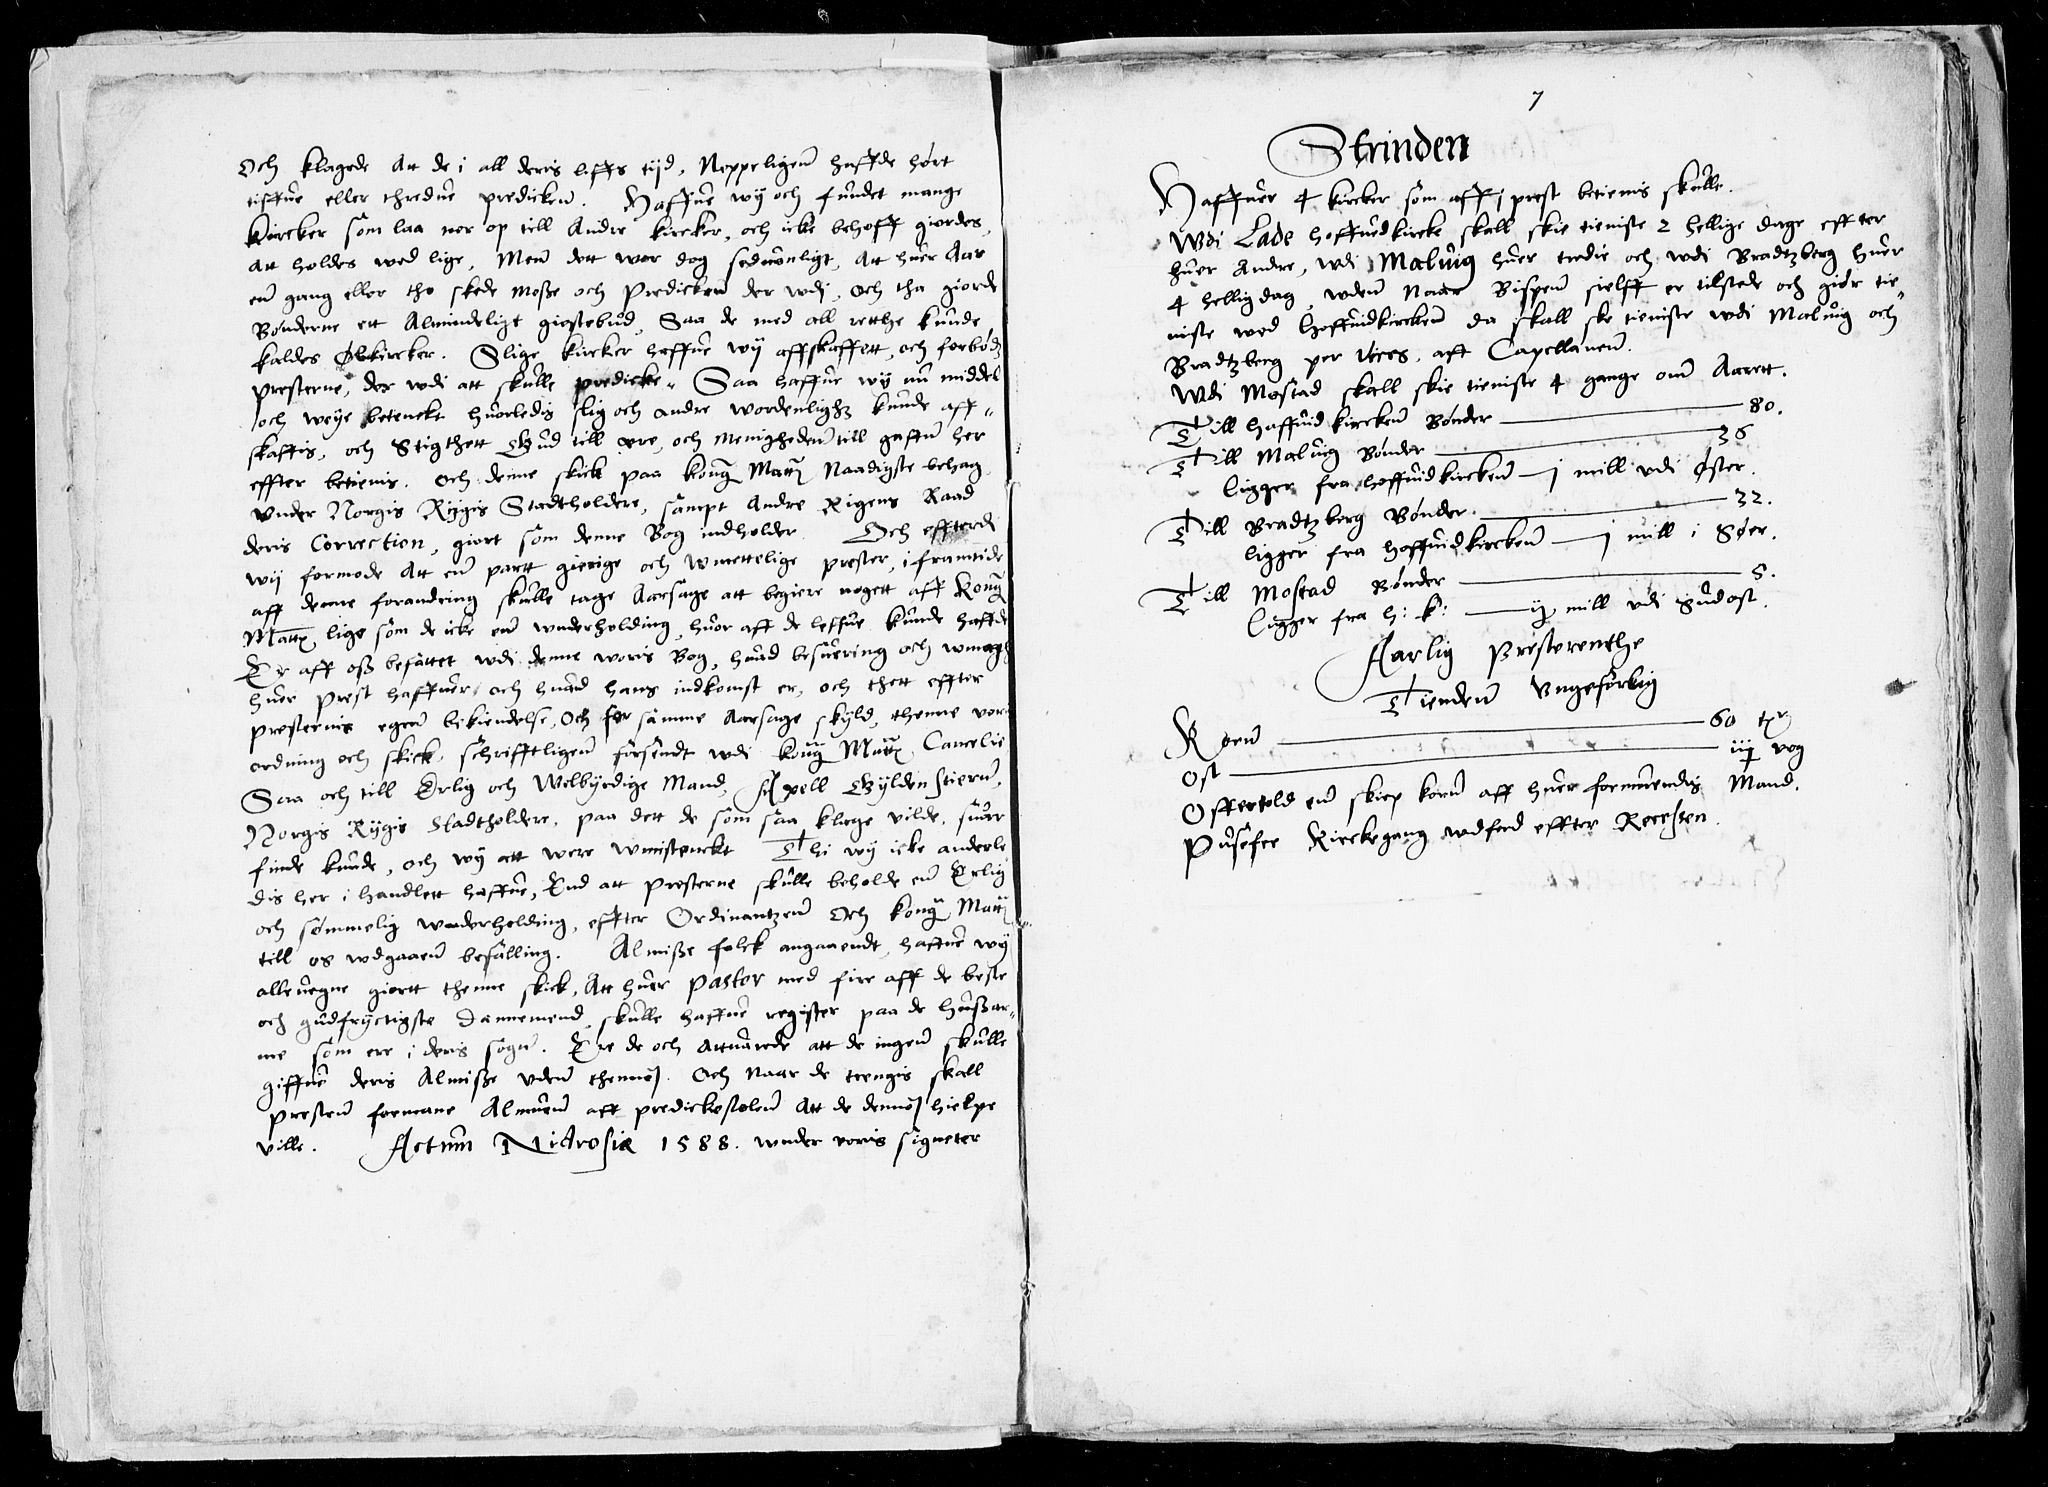 Och klagede Att de i all deris liffs tijd, Neppeligenn haffde hørt
tiffue eller thredue predicken. Haffue wij och fundet mange
Kircker som laa ner op till Andre kircker, och icke behoff giordes,
Att holdes wed lige, Menn dett wor dog seduonligt, Att huer Aar
enn gang eller tho skede Messe och Predicken der wdi, och tha giorde
Bønderne ett Almindeligt giestebud, Saa de med all retthe kunde
kaldes Ølkircker. Slige kircker haffue wij affskaffett, och forbødz
presterne, der wdi att skulle predicke. Saa haffue wij nu middel
och weye betenckt huorledis slig och andre wordenlighz kunde aff-
skaffis, och Stigthett Gud till ære, och Menighedenn till gaffn her
effter betienis. Och denne skick paa kong Matt Naadigste behag
Vnder Norgis Rijgis Stadtholdere, sampt Andre Rigens Raad
deris Correction, giort som denne Bog indholder. Och effterdi
wij formode Att enn partt gierige och wmettelige prester, i framtide
aff denne forandring skulle tage Aarsage att begiere nogett aff kong
Matt, lige som de icke enn wnderholding, huor aff de leffue kunde haffde
Er aff oss befattet wdi denne woris Bog, huad besuering och wmagh
huer prest haffuer, och huad hans indkomst er, och thett effter
presternis egenn bekiendelse, Och for samme Aarsage skyld, thenne vor
ordning och skick, schrifftligenn forsendt wdi kong Matt Cancelie
Saa och till Erlig och Welbyrdige Mand, Axell Gyldenstiern,
Norgis Rijgis Stadtholdere, paa dett de som saa klage vilde, suar
finde kunde, och wij att were wmistenckt. Thi wij icke anderle
dis her i handlett haffue, End att presterne skulle beholde enn Erlig
och sømmelig wnderholding, effter Ordinantzenn Och kong Matt
till os wdgaaenn befalling. Almisse folck angaaendt, haffue wij
alleuegne giortt thenne skick, Att huer Pastor med fire aff de beste
och gudfryctigste Dannemend, skulle haffue register paa de hussar-
me som ere i deris sogn. Ere de och Attuarede att de ingenn skulle
giffue deris Almisse vdenn thennom. Och Naar de trengis skall
prestenn formane Almuenn aff predickestolenn Att de dennom hielpe
ville. Actum Nidrosiæ 1588. wnder voris signeter
7
Strinden
Haffuer 4 kircker som aff 1 prest betienis skulle.
Wdi Lade hoffuedkircke skall skie tieniste 2 hellige dage effter
huer Andre, wdi Maluig huer tredie och wdi Bradtzberg huer
4 hellig dag, wdenn Naar Bispenn sielff er tilstede och giør tie-
niste wed Hoffuidkirckenn da skall ske tieniste wdi Maluig och
Bradtzberg per vices, aff Capellanenn.
Wdi Mostad skall skie tieniste 4 gange om Aarett.
Till haffuidkirckenn Bønder 80.
Till Maluig Bønder 36
Ligger fra hoffuidkirckenn j mill vdi Øster.
Till Bradtzberg Bønder. 32.
Ligger fra hoffuidkirckenn j mill i Søer.
Till Mostad Bønder 5.
Ligger fra h: k: ij mill vdi Sudost.
Aarlig Presterenthe
Tiendenn Vngeferlig
Kornn 60 tr
Ost iij vog
Offertold enn skiep kornn aff huer formuendis Mand.
Pusefee Kirckegang wdferd effter Recessen.